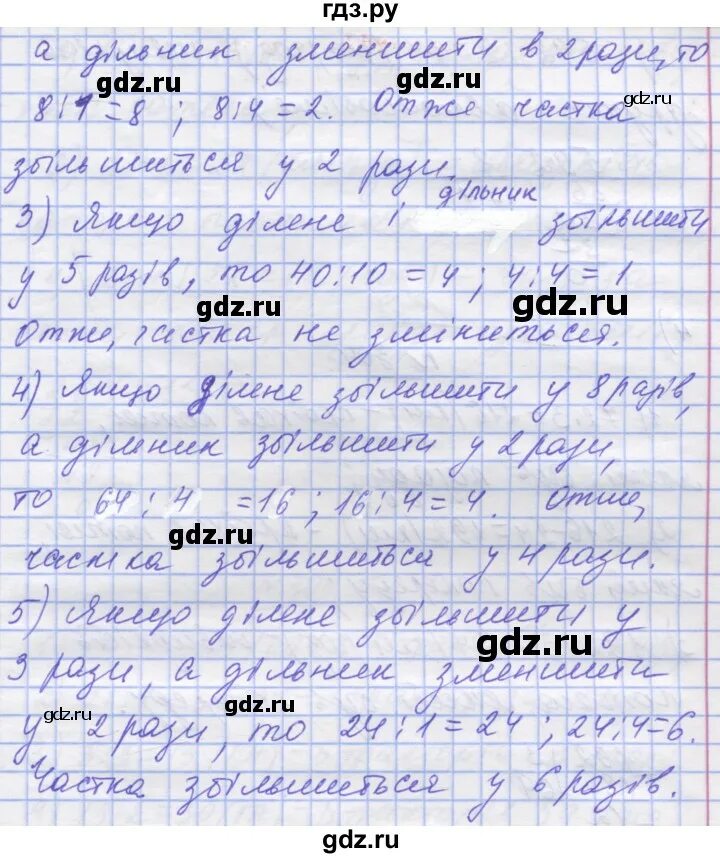 гдз.ру
а дільник зменшити в 2 рази, то
gdz.ru
8:1=8 ; 8:4=2. Отже частка
gdz.ru
збільшиться у 2 рази.
gdz.ru
дільник
3) Якщо ділене і збільшити
у 5 разів, то 40:10=4; 4:4=1
gdz.ru gdz.ru
Отже, частка не зміниться.
4) Якщо ділене збільшити у 8 разів,
gdz.ru
а дільник збільшити у 2 рази,
то 64:4 =16; 16:4=4. Отже,
gdz.ru gdz.ru
частка збільшиться у 4 рази.
5) Якщо ділене збільшити у
gdz.ru
3 рази, а дільник зменшити
gdz.ru gdz.ru
у 2 рази, то 24:1=24; 24:4=6.
Частка збільшиться у 6 разів.
gdz.ru